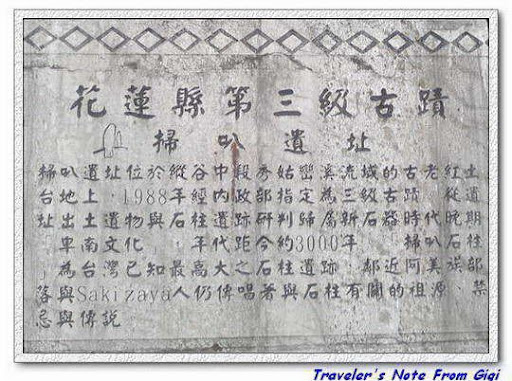 花蓮縣第三級古蹟
掃叭遺址
掃叭遺址位於縱谷中段秀姑巒溪流域的古老紅土
台地上,1988年經內政部指定為三級古蹟。從遺
址出土遺物與石柱遺跡研判歸屬新石器時代晚期
「卑南文化」,年代距今約3000年。「掃叭石柱
」為台灣已知最高大之石柱遺跡,鄰近阿美族部
落與Sakizaya人仍傳唱著與石柱有關的祖源、禁
忌與傳說
Traveler's Note From Gigi